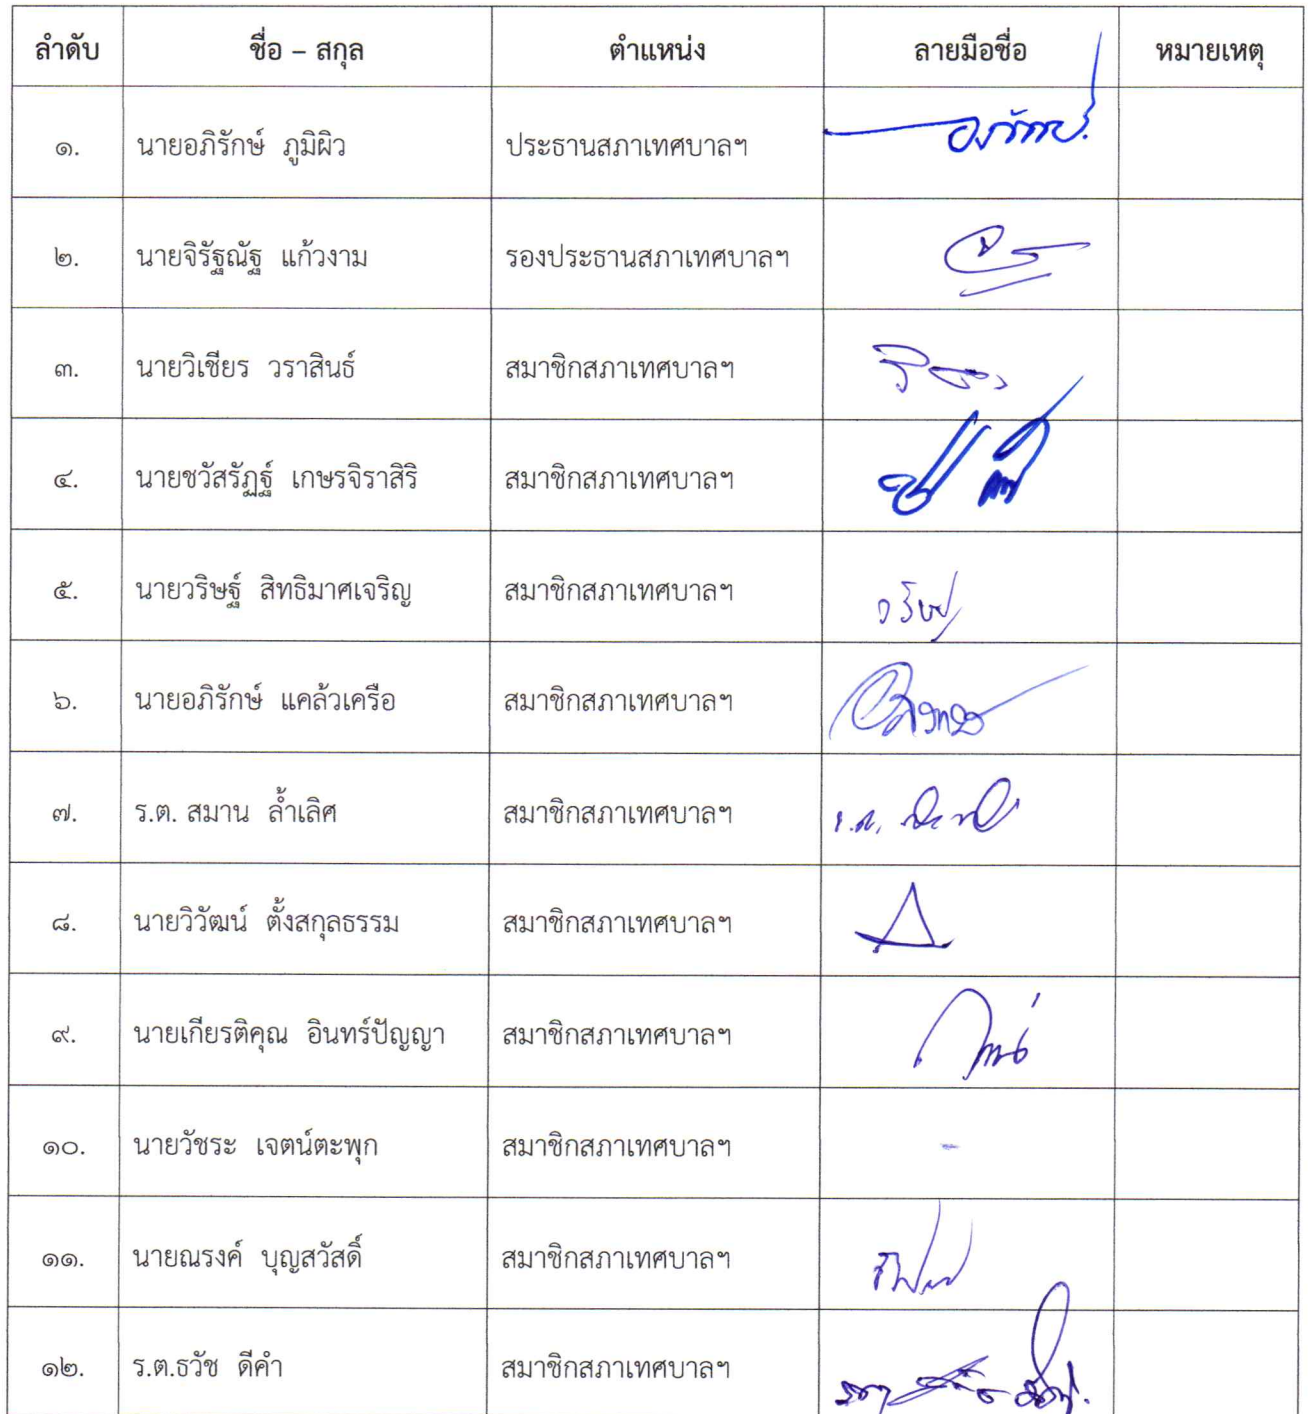 ลำดับ ชื่อ – สกุล ตำแหน่ง ลายมือชื่อ หมายเหตุ
๑. นายอภิรักษ์ ภูมิผิว ประธานสภาเทศบาลฯ
๒. นายจิรัฐณัฐ แก้วงาม รองประธานสภาเทศบาลฯ
๓. นายวิเชียร วราสินธ์ สมาชิกสภาเทศบาลฯ
๔. นายชวัสรัฏฐ์ เกษรจิราสิริ สมาชิกสภาเทศบาลฯ
๕. นายวริษฐ์ สิทธิมาศเจริญ สมาชิกสภาเทศบาลฯ
๖. นายอภิรักษ์ แคล้วเครือ สมาชิกสภาเทศบาลฯ
๗. ร.ต. สมาน ล้ำเลิศ สมาชิกสภาเทศบาลฯ
๘. นายวิวัฒน์ ตั้งสกุลธรรม สมาชิกสภาเทศบาลฯ
๙. นายเกียรติคุณ อินทร์ปัญญา สมาชิกสภาเทศบาลฯ
๑๐. นายวัชระ เจตน์ตะพุก สมาชิกสภาเทศบาลฯ -
๑๑. นายณรงค์ บุญสวัสดิ์ สมาชิกสภาเทศบาลฯ
๑๒. ร.ต.ธวัช ดีคำ สมาชิกสภาเทศบาลฯ